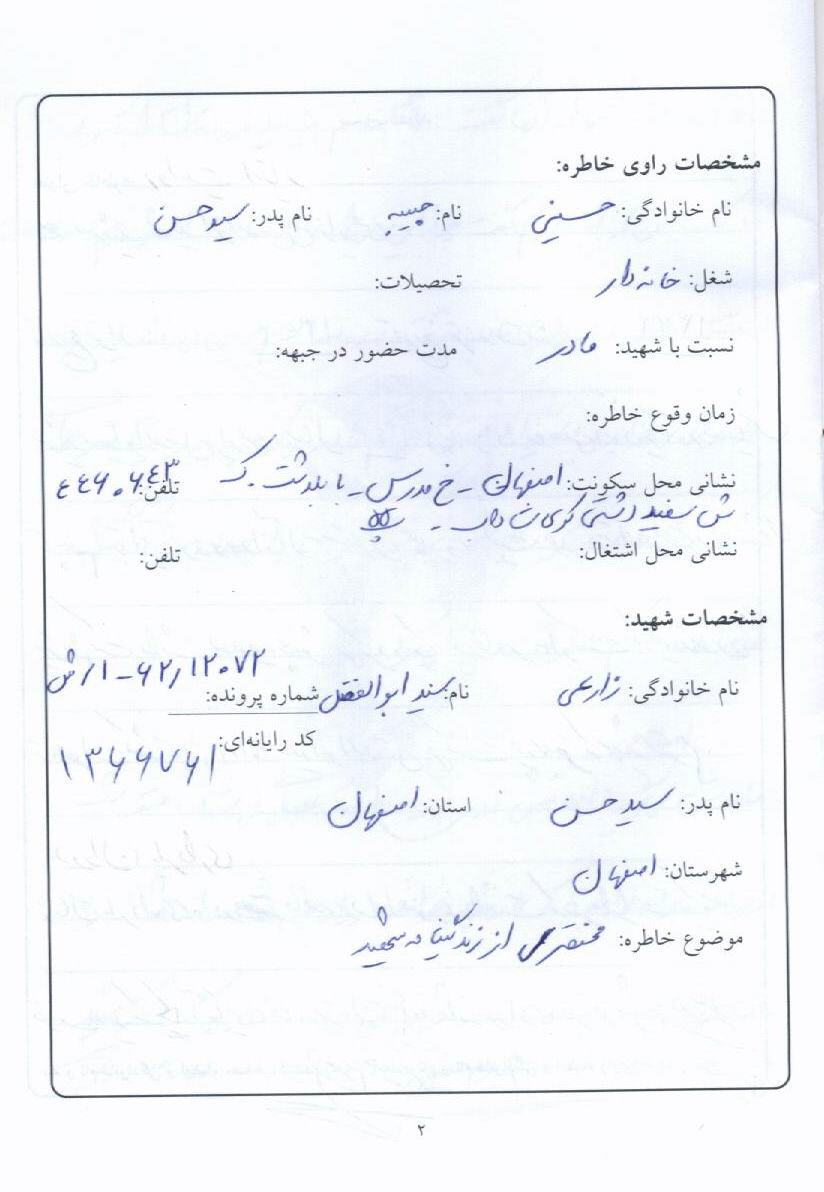 مشخصات راوی خاطره:
نام خانوادگی: حسینی نام: حبیبه نام پدر: سید حسن
شغل: خانه دار تحصیلات:
نسبت با شهید: مادر مدت حضور در جبهه:
زمان وقوع خاطره:
نشانی محل سکونت: اصفهان - خ مدرس - پا بلدشت ک تلفن: ۴۴۶۰۶۴۳
ش سفید دشتی کوی شاداب - پ ۵۵
نشانی محل اشتغال: تلفن:
مشخصات شهید:
نام خانوادگی: زارعی نام: سید ابوالفضل شماره پرونده: ۶۲/۱۲۰۷۲-۱/ش
کد رایانه‌ای: ۱۳۶۶۷۶۱
نام پدر: سید حسن استان: اصفهان
شهرستان: اصفهان
موضوع خاطره: مختصری از زندگینامه شهید
۲